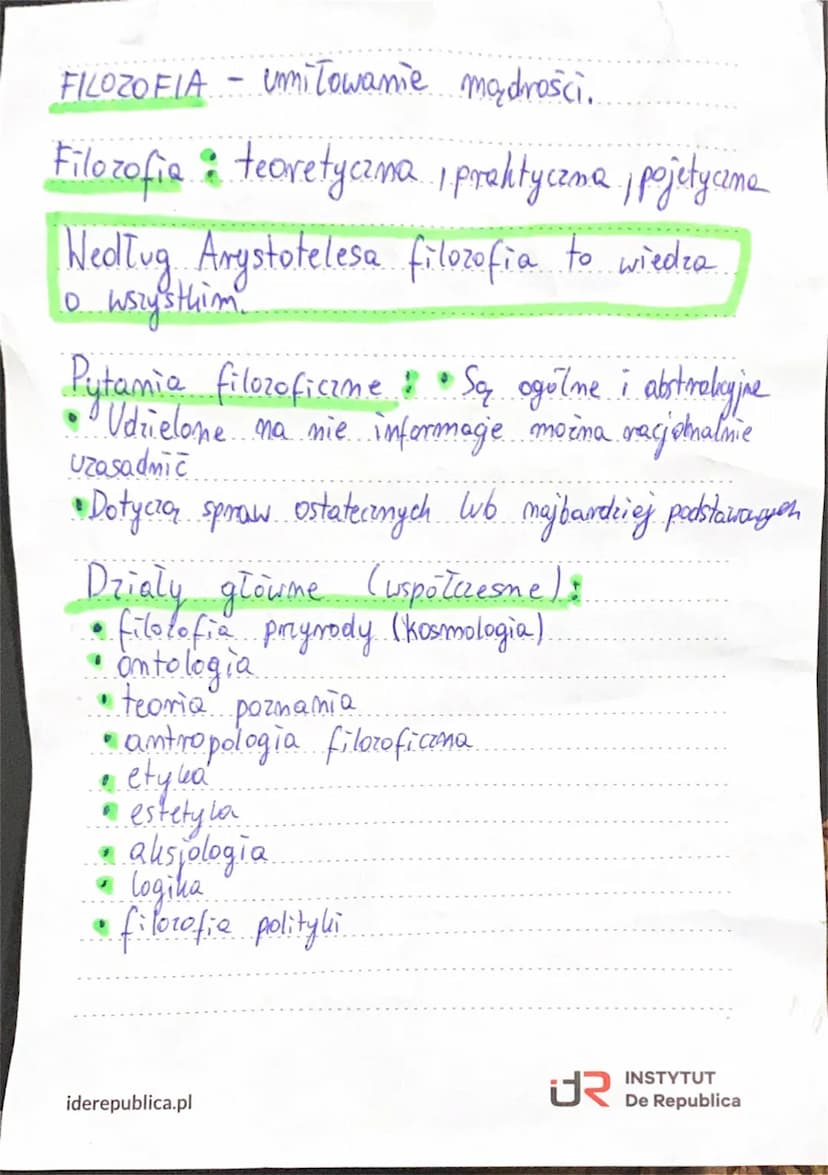 FILOZOFIA - umiłowanie mądrości.
Filozofia : teoretyczna , praktyczna , pojetyczna
Według Arystotelesa filozofia to wiedza
o wszystkim.
Pytania filozoficzne : • Są ogólne i abstrakcyjne
• Udzielone na nie informacje można racjonalnie
uzasadnić
• Dotyczą spraw ostatecznych lub najbardziej podstawowych
Działy główne (współczesne):
• filozofia przyrody (kosmologia)
• ontologia
• teoria poznania
• antropologia filozoficzna
• etyka
• estetyka
• aksjologia
• logika
• filozofia polityki
iderepublica.pl
INSTYTUT
De Republica